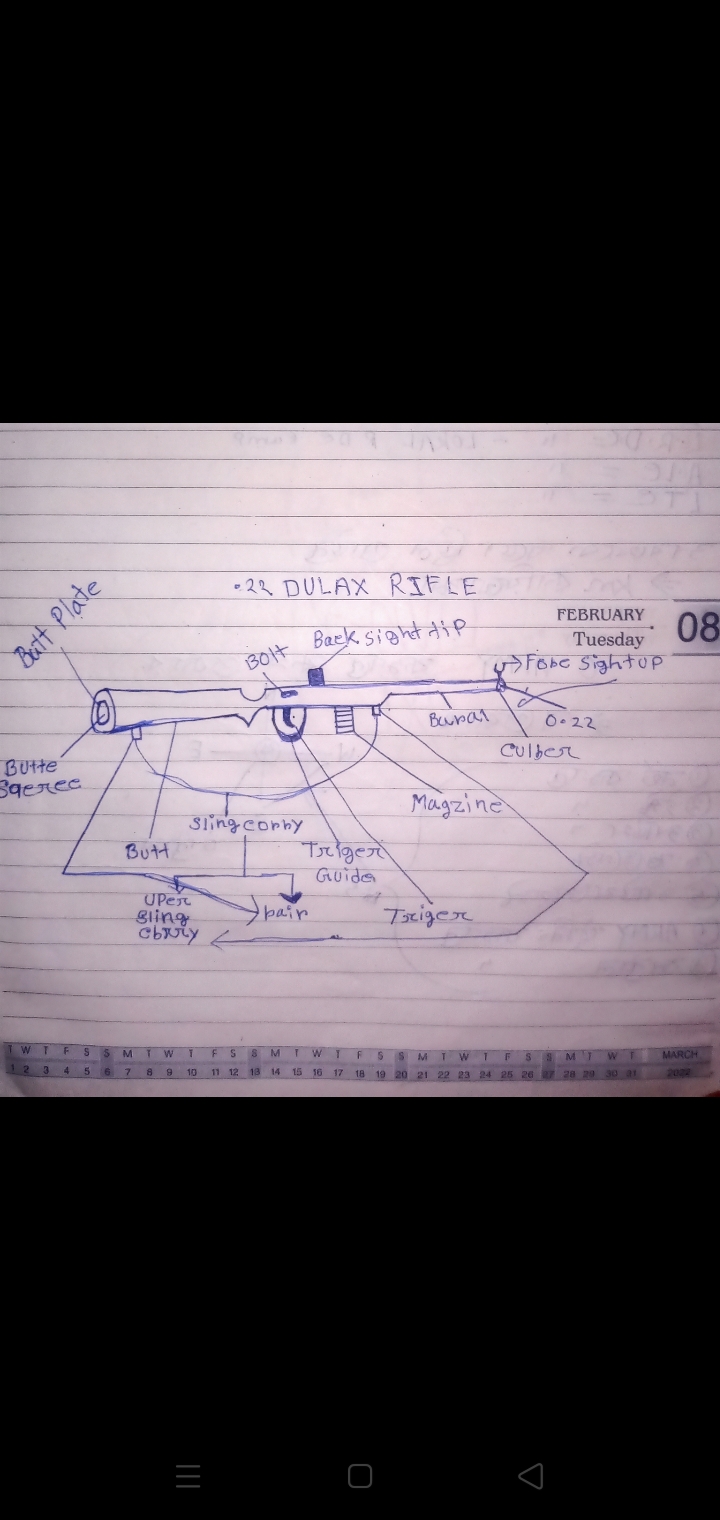 .22 DULAX RIFLE
FEBRUARY
Tuesday
08
Butt Plate
Bolt
Back sight tip
Fore sight UP
0.22
Baral
Culber
Butte
Magzine
Sling corry
Butt
Triger
Guide
UPer
Sling
pair
Triger
T W T F S S M T W T F S S M T W T F S S M T W T F S S M T W T MARCH
1 2 3 4 5 6 7 8 9 10 11 12 13 14 15 16 17 18 19 20 21 22 23 24 25 26 27 28 29 30 31 2022